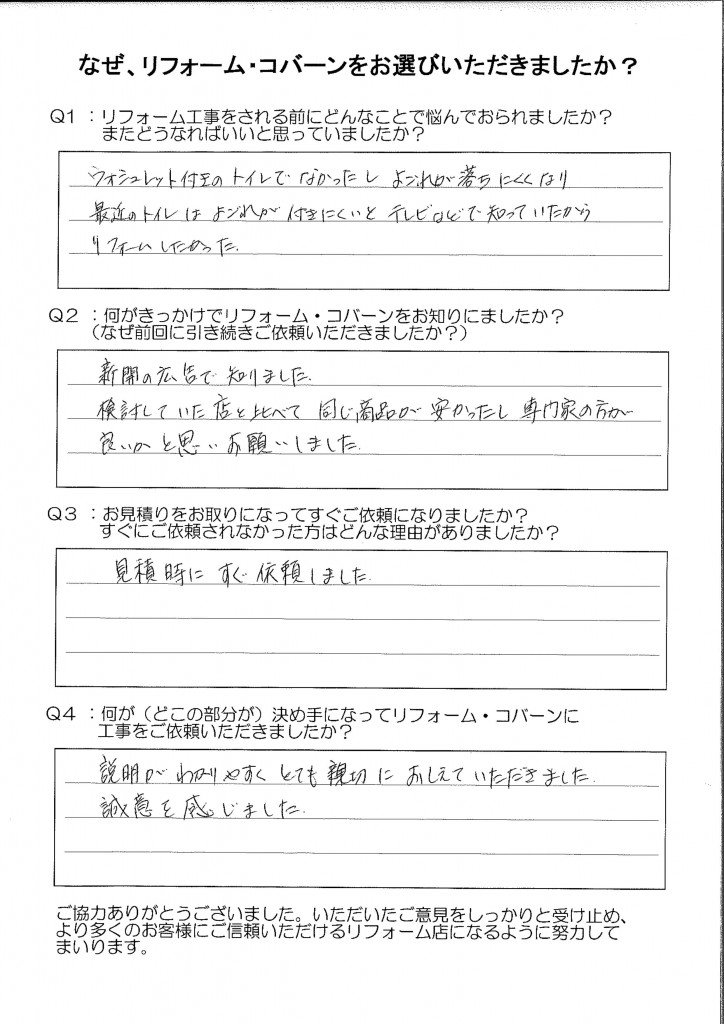 なぜ、リフォーム・コバーンをお選びいただきましたか？
Q1 ：リフォーム工事をされる前にどんなことで悩んでおられましたか？
またどうなればいいと思っていましたか？
ウォシュレット付きのトイレでなかったし よごれが落ちにくくなり
最近のトイレは よごれが付きにくいと テレビなどで知っていたから
リフォームしたかった.
Q2 ：何がきっかけでリフォーム・コバーンをお知りにましたか？
（なぜ前回に引き続きご依頼いただきましたか？）
新聞の広告で知りました.
検討していた店と比べて 同じ商品が 安かったし 専門家の方が
良いかと思いお願いしました.
Q3 ：お見積りをお取りになってすぐご依頼になりましたか？
すぐにご依頼されなかった方はどんな理由がありましたか？
見積時に すぐ依頼しました.
Q4 ：何が（どこの部分が）決め手になってリフォーム・コバーンに
工事をご依頼いただきましたか？
説明がわかりやすく とても親切に おしえていただきました.
誠意を感じました.
ご協力ありがとうございました。いただいたご意見をしっかりと受け止め、
より多くのお客様にご信頼いただけるリフォーム店になるように努力して
まいります。